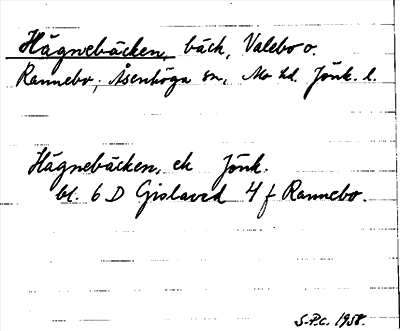 Hägnebäcken, bäck, Valebo o.
Rannebo, Åsenhöga sn, Mo hd. Jönk. l.
Hägnebäcken, ek Jönk.
bl. 6 D Gislaved 4 f Rannebo.
S.P.C. 1958.